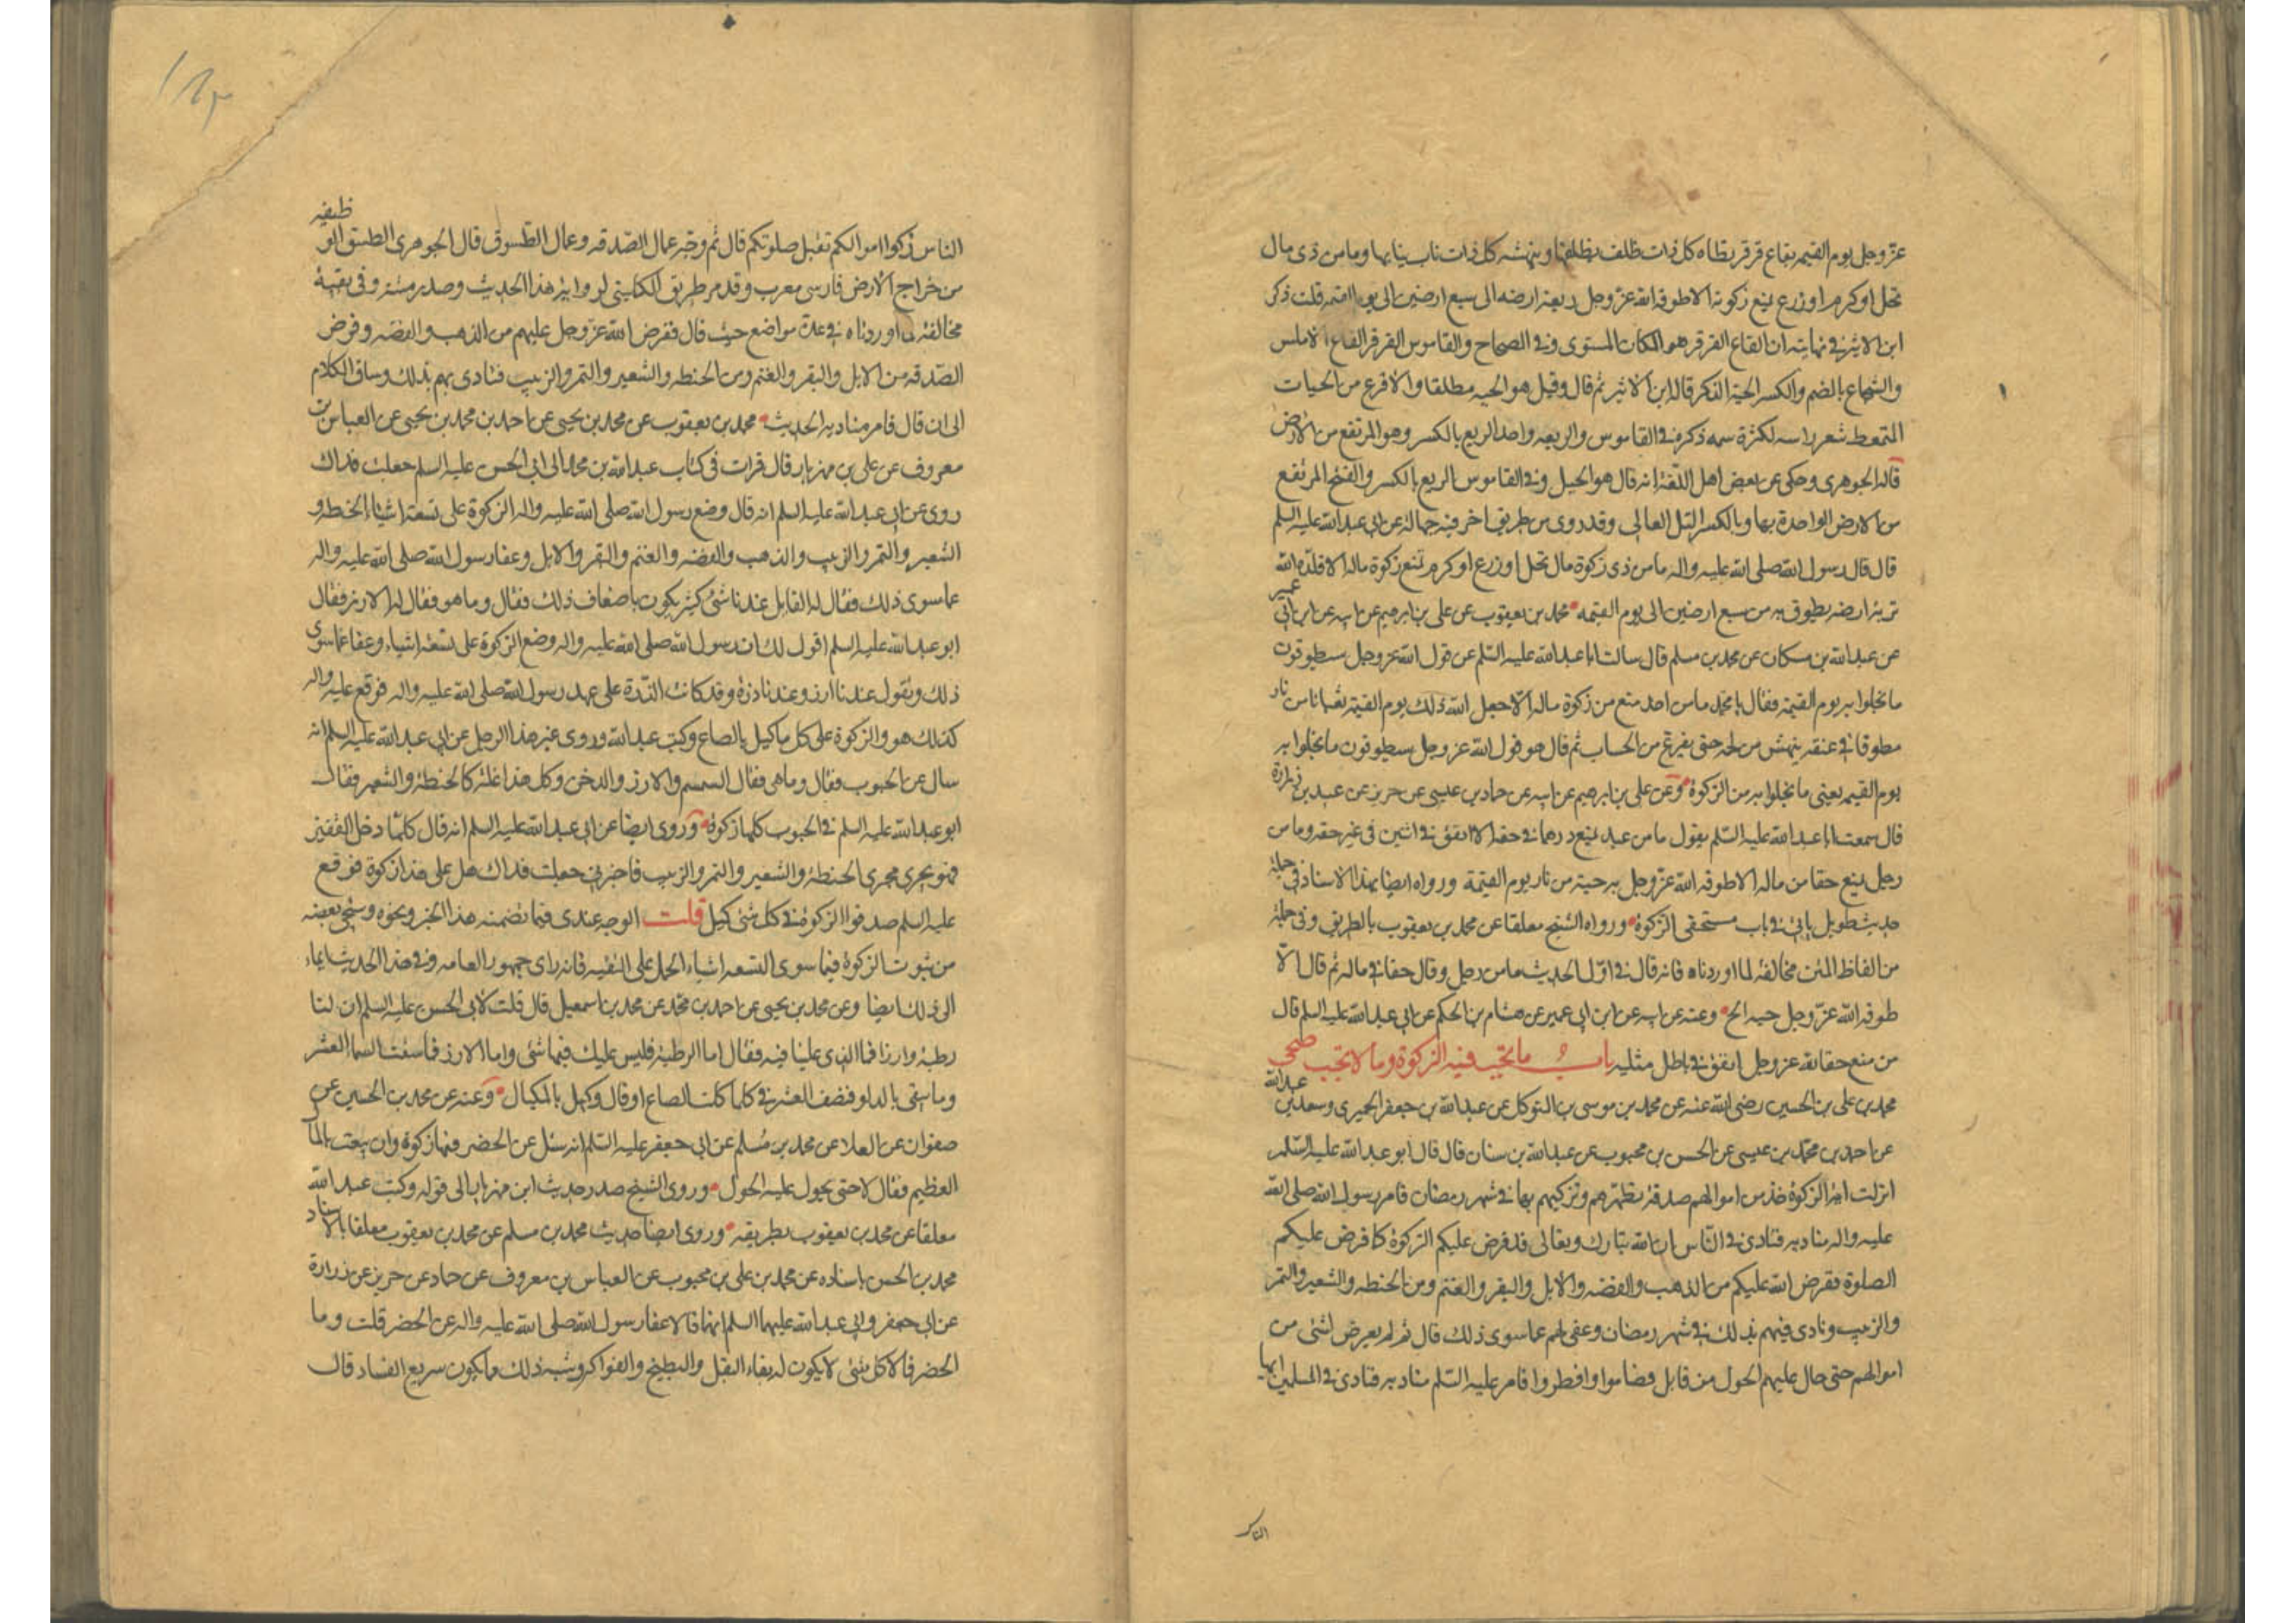 عزّ وجل يوم القيمه بقاع قرقر يطاه كل ذات ظلف بظلفها وينهشه كل ذات ناب بنابها وما من ذى مال
نخل او كرم او زرع يمنع زكوته الا طوقه الله عزّ وجل ريعة ارضه الى سبع ارضين الى يوم القيمة قلت ذكر
ابن الاثير في نهايته ان القاع القرقر هو المكان المستوى وفي الصحاح والقاموس القرقر القاع الاملس
والشجاع بالضم والكسر الحية الذكر قاله ابن الاثير ثم قال وقيل هو الحيه مطلقا والاقرع من الحيات
المتمعط شعر راسه لكثرة سمه ذكره في القاموس والريعه واحد الريع بالكسر وهو المرتفع من الارض
قاله الجوهرى وحكى عن بعض اهل اللغة انه قال هو الجبل وفي القاموس الريع بالكسر والفتح المرتفع
من الارض الواحدة بهاء وبالكسر التل العالى وقد روى من طريق اخر فيه جهالة عن ابى عبدالله عليه السلم
قال قال رسول الله صلى الله عليه واله ما من ذى زكوة مال نخل او زرع او كرم يمنع زكوة ماله الا قلده الله
تربة ارضه يطوق به من سبع ارضين الى يوم القيمه محمد بن يعقوب عن على بن ابرهيم عن ابيه عن ابن ابى عمير
عن عبدالله بن مسكان عن محمد بن مسلم قال سالت ابا عبدالله عليه السّلم عن قول الله عز وجل سيطوقون
ما بخلوا به يوم القيمة فقال يا محمد ما من احد منع من زكوة ماله الّا جعل الله ذلك يوم القيمة ثعبانا من نار
مطوقا في عنقه ينهش من لحمه حتى يفرغ من الحساب ثم قال هو قول الله عز وجل سيطوقون ما بخلوا به
يوم القيمه يعنى ما بخلوا به من الزكوة وعن على بن ابرهيم عن ابيه عن حماد بن عيسى عن حريز عن عبيد بن زرارة
قال سمعت ابا عبدالله عليه السّلم يقول ما من عبد يمنع درهما في حقه الا انفق في اثنين في غير حقه وما من
رجل يمنع حقا من ماله الا طوقه الله عزّ وجل به حية من نار يوم القيمة ورواه ايضا بهذا الاسناد في جملة
حديث طويل ياتى في باب مستحقى الزكوة ورواه الشيخ معلقا عن محمد بن يعقوب بالطريق وفي جملة
من الفاظ المتن مخالفة لما اوردناه فانه قال في اوّل الحديث ما من رجل وقال حقا في ماله ثم قال الّا
طوقه الله عزّ وجل حيه الخ وعنه عن ابيه عن ابن ابى عمير عن هشام بن الحكم عن ابى عبدالله عليه السلم قال
من منع حقا لله عز وجل انفق في باطل مثليه باب ما تجب فيه الزكوة وما لا تجب صحى
محمد بن على بن الحسين رضى الله عنه عن محمد بن موسى بن المتوكل عن عبدالله بن جعفر الحميرى وسعد بن عبدالله
عن احمد بن محمّد بن عيسى عن الحسن بن محبوب عن عبدالله بن سنان قال قال ابو عبدالله عليه السّلم
انزلت اية الزكوة خذ من اموالهم صدقة تطهرهم وتزكيهم بها في شهر رمضان فامر رسول الله صلى الله
عليه واله مناديه فنادى في النّاس ان الله تبارك وتعالى قد فرض عليكم الزكوة كما فرض عليكم
الصلوة ففرض الله عليكم من الذهب والفضه والابل والبقر والغنم ومن الحنطه والشعير والتمر
والزبيب ونادى فيهم بذلك في شهر رمضان وعفى لهم عما سوى ذلك قال ثم لم يعرض لشئ من
اموالهم حتى حال عليهم الحول من قابل فصاموا وافطروا فامر عليه السّلم مناديه فنادى في المسلمين ايها
الناس
الناس زكوا اموالكم تقبل صلوتكم قال ثم وجّه عمال الصّدقه وعمال الطّسوق قال الجوهرى الطسق الوظيفه
من خراج الارض فارسى معرب وقد مر طريق الكلينى لرواية هذا الحديث وصدر متنه وفي بقية
مخالفة لما اوردناه في عدة مواضع حيث قال ففرض الله عزّ وجل عليهم من الذهب والفضه وفرض
الصّدقه من الابل والبقر والغنم ومن الحنطه والشعير والتمر والزبيب فنادى بهم بذلك وساق الكلام
الى ان قال فامر مناديه الحديث محمد بن يعقوب عن محمد بن يحيى عن احمد بن محمد بن يحيى عن العباس بن
معروف عن على بن مهزيار قال قرات في كتاب عبدالله بن محمد الى ابى الحسن عليه السلم جعلت فداك
روى عن ابى عبدالله عليه السلم انه قال وضع رسول الله صلى الله عليه واله الزكوة على تسعة اشياء الحنطه و
الشعير والتمر والزبيب والذهب والفضه والغنم والبقر والابل وعفا رسول الله صلى الله عليه واله
عما سوى ذلك فقال له القايل عندنا شئ كثير يكون باضعاف ذلك فقال وما هو فقال له الارز فقال
ابو عبدالله عليه السلم اقول لك ان رسول الله صلى الله عليه واله وضع الزكوة على تسعة اشياء وعفا عما سوى
ذلك وتقول عندنا ارز وعندنا ذرة وقد كانت الذّرة على عهد رسول الله صلى الله عليه واله فوقع عليه السلم
كذلك هو والزكوة على كل ما كيل بالصاع وكتب عبدالله وروى غير هذا الرجل عن ابى عبدالله عليه السلم انه
سال عن الحبوب فقال وما هى فقال السمسم والارز والدخن وكل هذا غلة كالحنطة والشعير فقال
ابو عبدالله عليه السلم في الحبوب كلها زكوة وروى ايضا عن ابى عبدالله عليه السلم انه قال كلما دخل القفيز
فهو يجرى مجرى الحنطة والشعير والتمر والزبيب فاخبرنى جعلت فداك هل على هذا زكوة فوقع
عليه السلم صدقوا الزكوة في كل شئ كيل قلت الوجه عندى فيما تضمنه هذا الخبر ونحوه وسيجئ بعضه
من ثبوت الزكوة فيما سوى التسعه اشياء الحمل على التقيه فانه راى جمهور العامه وفي هذا الحديث ايماء
الى ذلك ايضا وعن محمد بن يحيى عن احمد بن محمّد عن محمد بن اسمعيل قال قلت لابى الحسن عليه السلم ان لنا
رطبة وارزا فما الذى علينا فيه فقال اما الرطبة فليس عليك فيها شئ واما الارز فما سقت السما العشر
وما سقى بالدلو فنصف العشر في كلما كلت بالصاع او قال وكيل بالمكيال وعنه عن محمد بن الحسين عن
صفوان عن العلا عن محمد بن مُسلم عن ابى جعفر عليه السّلم انه سئل عن الخضر فيها زكوة وان بيعت بالمال
العظيم فقال لا حتى يحول عليه الحول وروى الشيخ صدر حديث ابن مهزيار الى قوله وكتب عبدالله
معلقا عن محمد بن يعقوب بطريقه وروى ايضا حديث محمد بن مسلم عن محمد بن يعقوب معلقا بالاسناد
محمد بن الحسن باسناده عن محمد بن على بن محبوب عن العباس بن معروف عن حماد عن حريز عن زرارة
عن ابى جعفر وابى عبدالله عليهما السلم انهما قالا عفا رسول الله صلى الله عليه واله عن الخضر قلت وما
الخضر قالا كل شئ لا يكون له بقاء البقل والبطيخ والفواكه وشبه ذلك مما يكون سريع الفساد قال